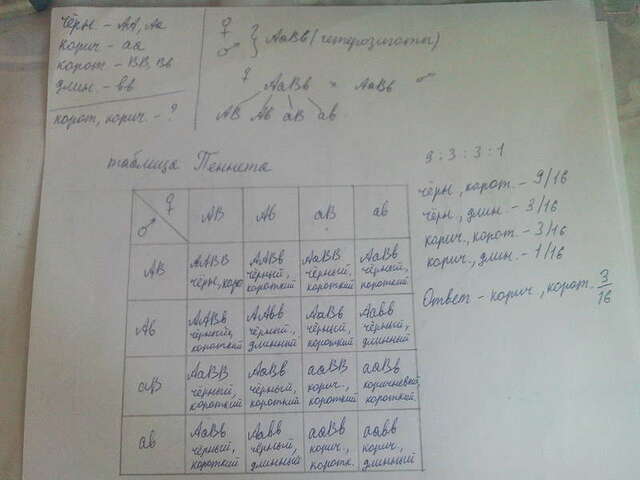 чёрн - АА, Аа
корич - аа
корот - ВВ, Вв
длин. - вв
корот, корич - ?
♀
♂ } АаВв (гетерозигота)
♀ АаВв × АаВв ♂
АВ Ав аВ ав
таблица Пеннета
♂ ♀ АВ Ав аВ ав
АВ ААВВ чёрн, кор ААВв чёрный, короткий АаВВ чёрный, короткий АаВв чёрный, короткий
Ав ААВв чёрный, короткий ААвв чёрный, длинный АаВв чёрный, короткий Аавв чёрный, длинный
аВ АаВВ чёрный короткий АаВв чёрный, короткий ааВВ корич., короткий ааВв коричневый, короткий
ав АаВв чёрный, короткий Аавв чёрный, длинный ааВв корич., коротк. аавв корич, длинный
9 : 3 : 3 : 1
чёрн, корот. - 9/16
чёрн, длин. - 3/16
корич, корот. - 3/16
корич., длин. - 1/16
Ответ - корич, корот. 3/16